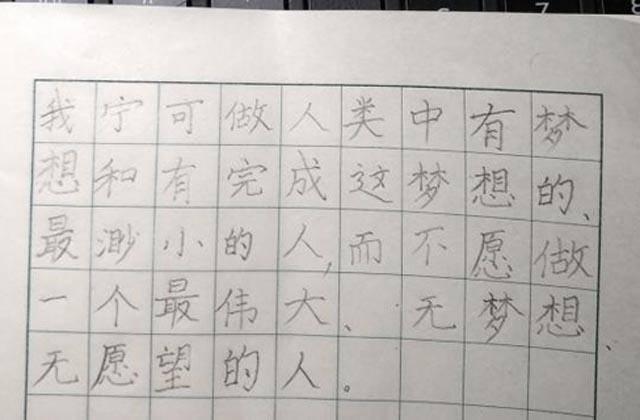 我宁可做人类中有梦
想和有完成这梦想的、
最渺小的人,而不愿做
一个最伟大、无梦想、
无愿望的人。